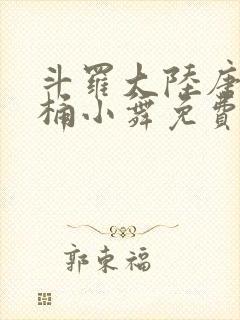 斗羅大陸唐
桶小舞免費
郭東福